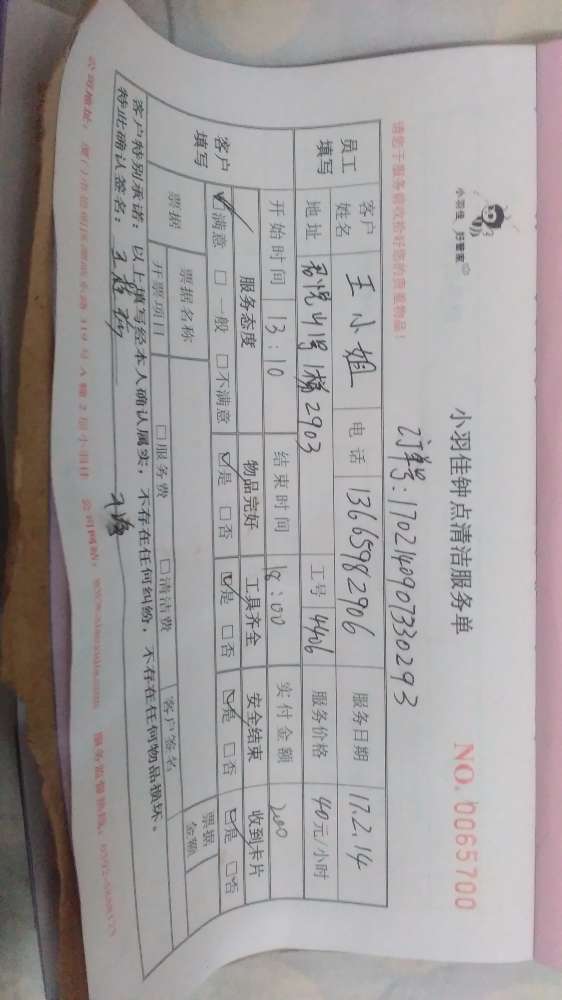 小羽佳 好管家
小羽佳钟点清洁服务单
NO. 0065700
订单号:1702140907330293
请您于服务前收拾好您的贵重物品!
员工填写
客户姓名 王小姐 电话 13665982906 服务日期 17.2.14
地址 1号1梯2903 工号 4406 服务价格 40元/小时
开始时间 13:10 结束时间 18:00 实付金额 200
客户填写
服务态度 物品完好 工具齐全 安全结束 收到卡片
☑满意 □一般 □不满意 ☑是 □否 ☑是 □否 ☑是 □否 ☑是 □否
票据 票据名称 票据金额
开票项目 □服务费 □清洁费 客户签名
客户特别承诺:以上填写经本人确认属实,不存在任何纠纷,不存在任何物品损坏。
特此确认签名:王
公司地址: 319号A幢2层小羽佳 公司网站: 服务监督热线: